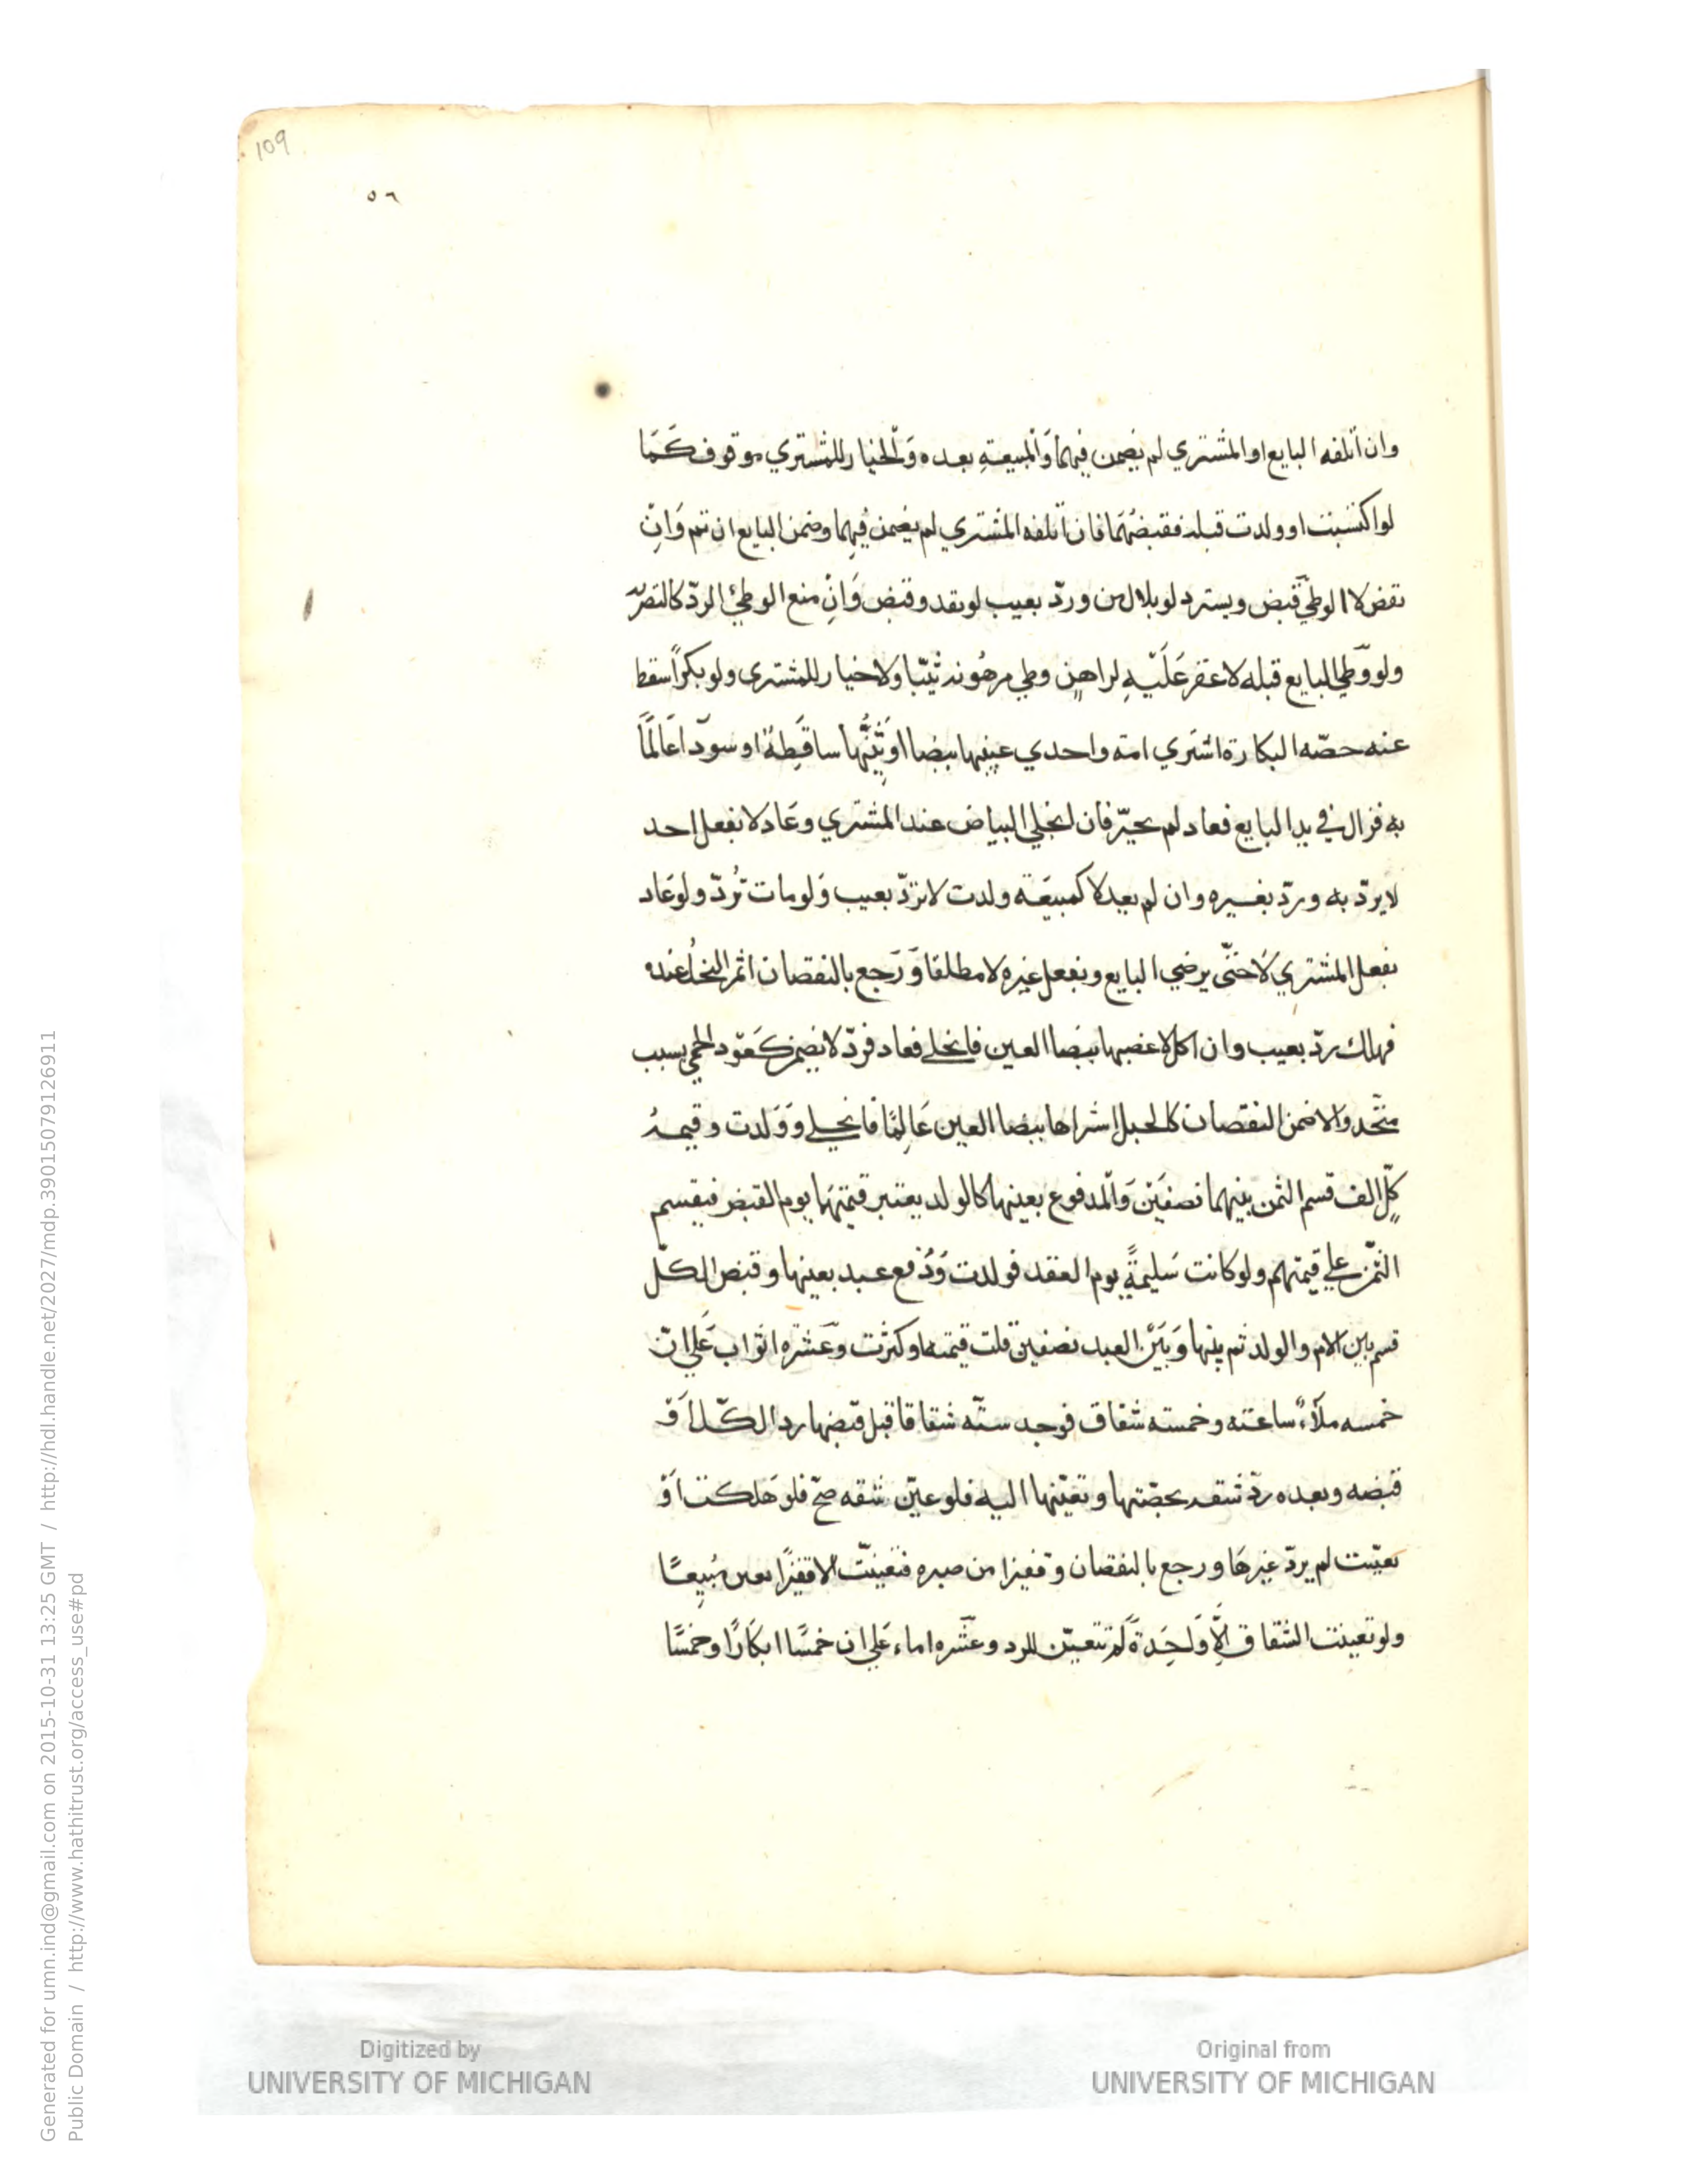 109
٥٦
وان اتلفه البايع او المشتري لم يضمن فيهما وَالمبيعةِ بعده وَالخيار للمشتري موقوف كَمَا
لو اكتسبت او ولدت قبله فقبضهَما فان اتلفه المشتري لم يضمن فيهِما وضمن البايع ان تم وَانِ
نقض لا الوطئ قبض ويسترد لو بلا اذن وردّ بعيب لو نقد وقبض وَانِ منع الوطئ الردّ كالتصرّ
ولو وَطئ البايع قبله لا عقر عَلَيْهِ لراهنٍ وطي مرهُونه ثيّبا ولا خيار للمشتري ولو بكراً سقط
عنه حصّه البكارة اشتري امة واحدي عينيها بيضا او ثنيّتها ساقِطة او سودا عَالمًا
به فزال في يد البايع فعاد لم يخيّر فان انجلي البياض عند المشتري وعَاد لا بفعل احد
لا يردّ به وردّ بغيره وان لم يعد لا كمبيعَة ولدت لا تردّ بعيب وَلو مات تُردّ ولو عَاد
بفعل المشتري لا حتّى يرضي البايع وبفعل غيره لا مطلقا وَرَجع بالنقصان اثمر النخلُ عنده
فهلك ردّ بعيب وان اكل لا غصبها بيضا العين فانجلي فعاد فردّ لا يضمن كَعَوْد الحمي بسبب
متّحد والا ضمن النقصان كالحبل اشراها بيضا العين عَالِمًا فانجلي وَوَلدت وقيمة
كلٍّ الف قسم الثمن بينهما نصفَيْن وَالمدفوع بعينها كالولد يعتبر قيمتهَا يوم القبض فيقسم
الثمن علي قيمتهم ولو كانت سَليمةً يوم العقد فولدت وَدُفع عبد بعينها وقبض الكلّ
قسم بين الام والولد ثم بينها وَبَيْن العبد نصفين قلت قيمته او كثرت وعَشرة اثواب عَلي انّ
خمسه ملآءً ساعته وخمسته شقاق فوجد ستّه شقاقا قبل قبضها رد الكلّ اَوْ
قبضه وبعده ردّ شقه بحصّتها وتعيّنها اليه فلو عيّن شقه صحّ فلو هَلكت اَوْ
تعيّبت لم يردّ غيرهَا ورجع بالنقصان وقفيزا من صبره فتعيبّت الا قفيزًا تعين مَبِيعًا
ولو تعيبت الشقاق اِلّا وَاحِدَة لَم تتعيّن للرد وعشره اماء عَلي ان خمسًا ابكَارًا وخمسًا
Digitized by
UNIVERSITY OF MICHIGAN
Original from
UNIVERSITY OF MICHIGAN
Generated for umn.ind@gmail.com on 2015-10-31 13:25 GMT / http://hdl.handle.net/2027/mdp.39015079126911
Public Domain / http://www.hathitrust.org/access_use#pd